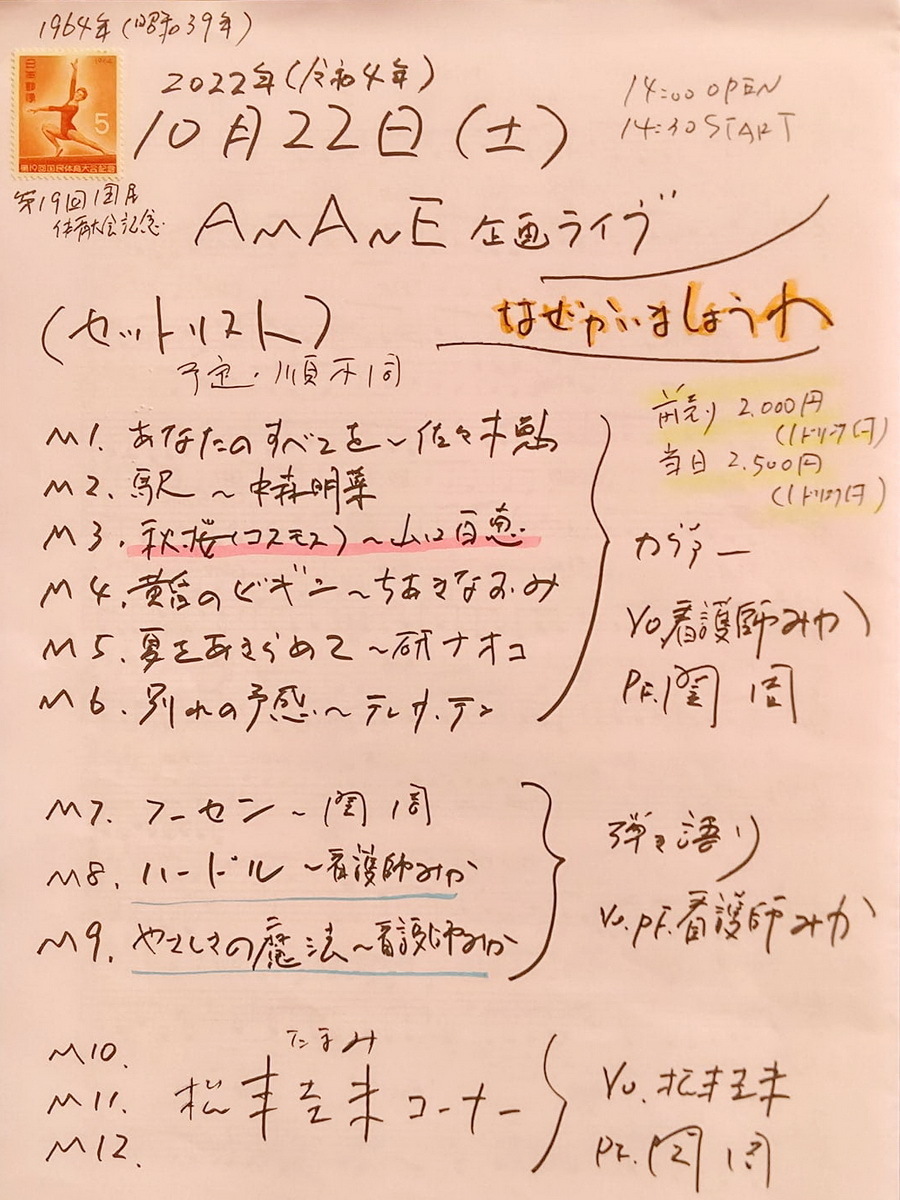 1964年(昭和39年)
日本郵便
1964
5
第19回国民体育大会記念
第19回国民
体育大会記念
2022年(令和4年)
10月22日(土)
14:00 OPEN
14:30 START
AMANE 企画ライブ
なぜかいましょうわ
(セットリスト)
予定・順不同
前売り 2.000円
(1ドリンク付)
当日 2.500円
(1ドリンク付)
M1. あなたのすべてを〜佐々木勉
M2. 駅〜中森明菜
M3. 秋桜(コスモス)〜山口百恵
M4. 黄昏のビギン〜ちあきなおみ
M5. 夏をあきらめて〜研ナオコ
M6. 別れの予感〜テレサ・テン
カヴァー
Vo.看護師みか
Pf.関 周
M7. フーセン〜関 周
M8. ハードル〜看護師みか
M9. やさしさの魔法〜看護師みか
弾き語り
Vo.pf.看護師みか
M10.
M11.
M12.
たまみ
松本圭未コーナー
Vo.松本圭未
Pf.関 周